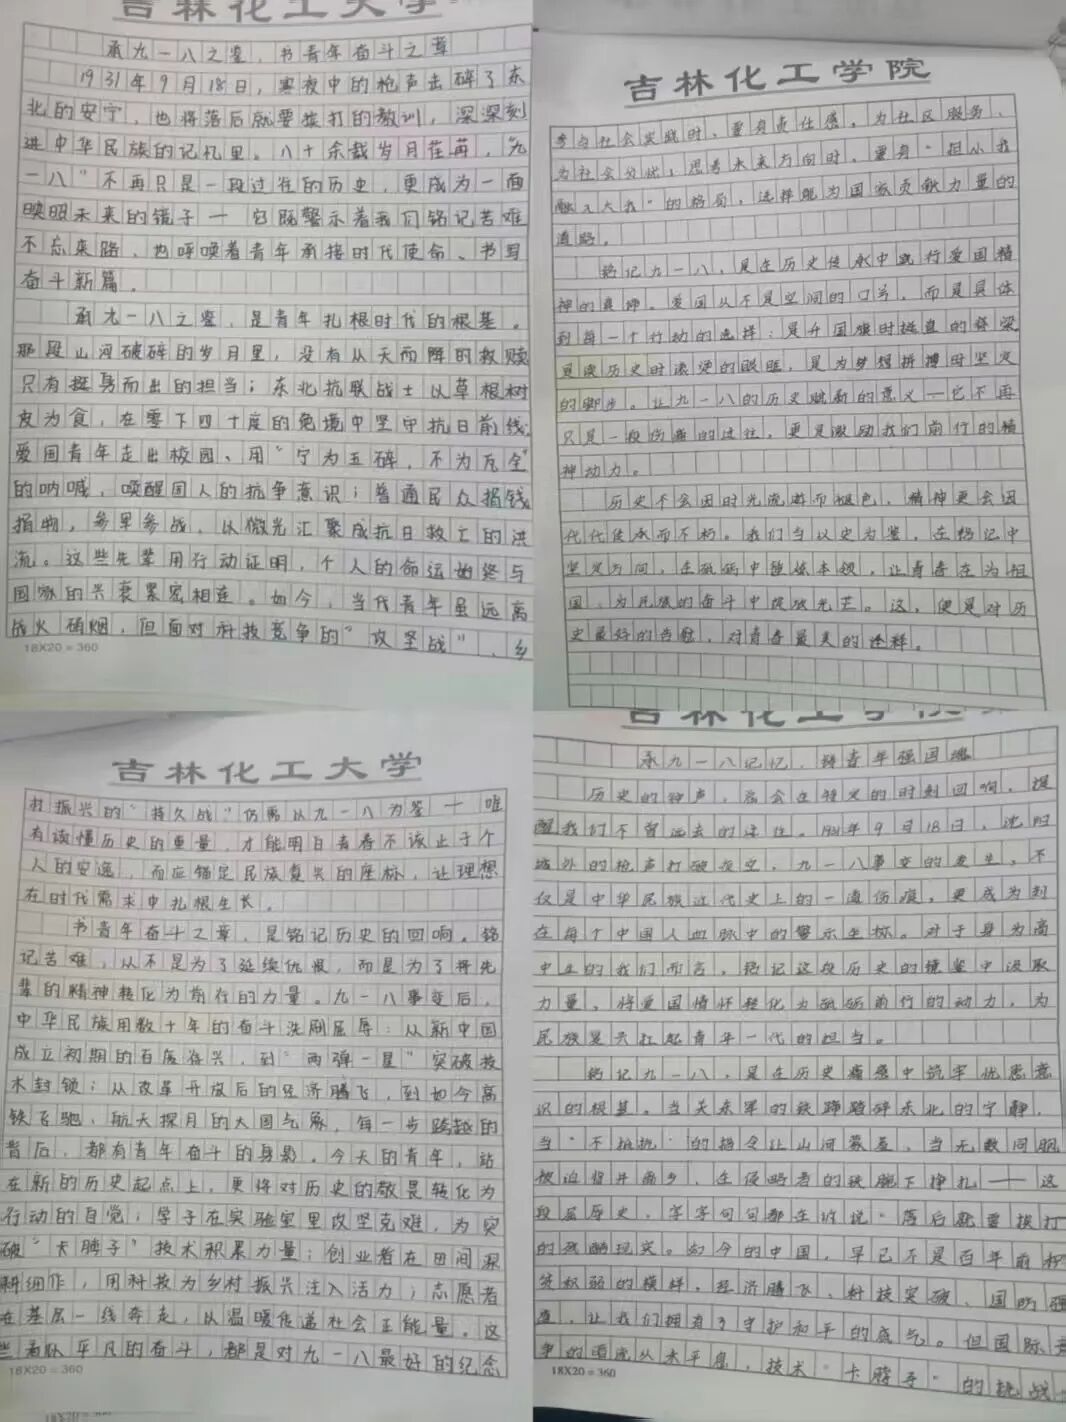 吉林化工大学
承九一八之鉴，书青年奋斗之章
1931年9月18日，寒夜中的枪声击碎了东
北的安宁，也将落后就要挨打的教训，深深刻
进中华民族的记忆里。八十余载岁月荏苒，"九
一八"不再只是一段过往的历史，更成为一面
映照未来的镜子一它既警示着我们铭记苦难
不忘来路，也呼唤着青年承接时代使命、书写
奋斗新篇。
承九一八之鉴，是青年扎根时代的根基。
那段山河破碎的岁月里，没有从天而降的救赎
只有挺身而出的担当；东北抗联战士以草根树
皮为食，在零下四十度的绝境中坚守抗日前线；
爱国青年走出校园、用"宁为玉碎，不为瓦全"
的呐喊，唤醒国人的抗争意识；普通民众捐钱
捐物，参军参战，以微光汇聚成抗日救亡的洪
流。这些先辈用行动证明，个人的命运始终与
国家的兴衰紧密相连。如今，当代青年虽远离
战火硝烟，但面对科技竞争的"攻坚战"、乡
18X20=360
吉林化工大学
村振兴的"持久战"仍需以九一八为鉴一唯
有读懂历史的重量，才能明白青春不该止于个
人的安逸，而应锚定民族复兴的座标，让理想
在时代需求中扎根生长。
书青年奋斗之章，是铭记历史的回响。铭
记苦难，从不是为了延续仇恨，而是为了将先
辈的精神转化为前行的力量。九一八事变后，
中华民族用数十年的奋斗洗刷屈辱：从新中国
成立初期的百废待兴，到"两弹一星"突破技
术封锁；从改革开放后的经济腾飞，到如今高
铁飞驰、航天探月的大国气象，每一步跨越的
背后，都有青年奋斗的身影。今天的青年，站
在新的历史起点上，更将对历史的敬畏转化为
行动的自觉；学子在实验室里攻坚克难，为突
破"卡脖子"技术积累力量；创业者在田间深
耕细作，用科技为乡村振兴注入活力；志愿者
在基层一线奔走，以温暖传递社会正能量。这
些看似平凡的奋斗，都是对九一八最好的纪念
18X20=360
吉林化工学院
参与社会实践时，重身责任感，为社区服务、
为社会分忧；思考未来方向时，重身"担小我
融入大我"的格局，选择能为国家贡献力量的
道路。
铭记九一八，是在历史传承中践行爱国精
神的真谛。爱国从不是空间的口号，而是具体
到每一个行动的选择：是升国旗时挺直的脊梁
是读历史时滚烫的眼眶，是为梦想拼搏时坚定
的脚步。让九一八的历史赋新的意义一它不再
只是一段伤痛的过往，更是激励我们前行的精
神动力。
历史不会因时光流逝而褪色，精神更会因
代代传承而不朽。我们当以史为鉴，在铭记中
坚定方向，在砥砺中锤炼本领，让青春在为祖
国、为民族的奋斗中绽放光芒。这，便是对历
史最好的告慰，对青春最美的诠释。
承九一八记忆，铸青年强国魂
历史的钟声，总会在特定的时刻回响，提
醒我们不曾远去的过往。1931年9月18日，沈阳
城外的枪声打破夜空，九一八事变的发生，不
仅是中华民族近代史上的一道伤痕，更成为刻
在每个中国人血脉中的警示坐标。对于身为高
中生的我们而言，铭记这段历史的镜鉴中汲取
力量，将爱国情怀转化为砥砺前行的动力，为
民族复兴扛起青年一代的担当。
铭记九一八，是在历史痛感中筑牢忧患意
识的根基。当关东军的铁蹄踏碎东北的宁静，
当"不抵抗"的指令让山河蒙羞，当无数同胞
被迫背井离乡，在侵略者的铁腕下挣扎——这
段屈辱史，字字句句都在诉说"落后就要挨打
的残酷现实。如今的中国，早已不是百年前积
贫积弱的模样，经济腾飞、科技突破、国防强
盛，让我们拥有了守护和平的底气。但国际竞
争的浪流从未平息，技术"卡脖子"的挑战
18X20=360